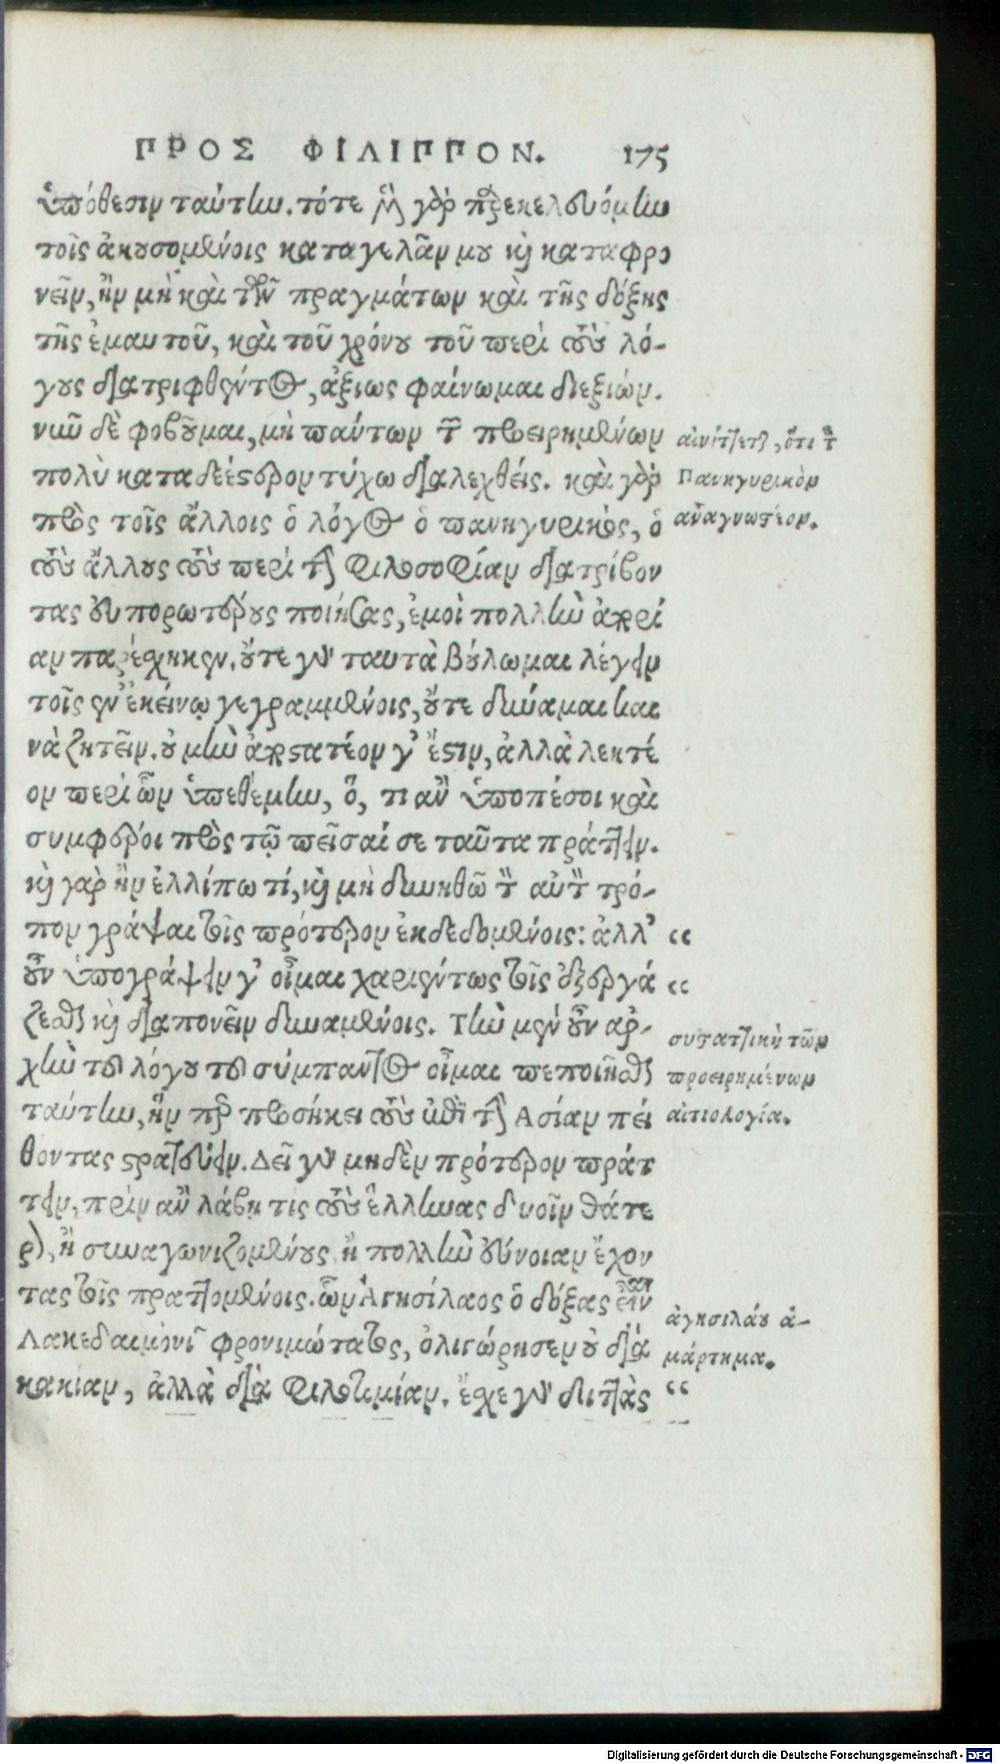 ΠΡΟΣ ΦΙΛΙΠΠΟΝ. 175
ὑπόθεσιν ταύτην. τότε μὲν γὰρ παρεκελευόμην
τοῖς ἀκουσομένοις καταγελᾶν μου καὶ καταφρο
νεῖν, ἢν μὴ καὶ τῶν πραγμάτων καὶ τῆς δόξης
τῆς ἐμαυτοῦ, καὶ τοῦ χρόνου τοῦ περὶ τοὺς λό-
γους διατριφθέντος, ἀξίως φαίνωμαι διεξιών.
νῦν δὲ φοβοῦμαι, μὴ πάντων τῶν προειρημένων
πολὺ καταδεέστερον τύχω διαλεχθείς. καὶ γὰρ
πρὸς τοῖς ἄλλοις ὁ λόγος ὁ πανηγυρικός, ὁ
τοὺς ἄλλους τοὺς περὶ τὴν φιλοσοφίαν διατρίβον
τας εὐπορωτέρους ποιήσας, ἐμοὶ πολλὴν ἀπορί
αν παρέσχηκεν. οὔτε γὰρ ταυτὰ βούλωμαι λέγειν
τοῖς ἐν ἐκείνῳ γεγραμμένοις, οὔτε δύναμαι και
νὰ ζητεῖν. οὐ μὴν ἀποστατέον γ' ἔστιν, ἀλλὰ λεκτέ
ον περὶ ὧν ὑπεθέμην, ὅ, τι ἂν ὑποπέσοι καὶ
συμφέροι πρὸς τῷ πεῖσαί σε ταῦτα πράττειν.
καὶ γὰρ ἢν ἐλλίπω τί, καὶ μὴ δυνηθῶ τὸν αὐτὸν τρό-
πον γράψαι τοῖς πρότερον ἐκδεδομένοις: ἀλλ' “
οὖν ὑπογράψειν γ' οἶμαι χαριέντως τοῖς ἐξεργά “
ζεσθαι καὶ διαπονεῖν δυναμένοις. Τὴν μὲν οὖν ἀρ-
χὴν τοῦ λόγου τοῦ σύμπαντος οἶμαι πεποιῆσθαι
ταύτην, ἥν περ προσήκει τοὺς ἐπὶ τὴν Ἀσίαν πεί
θοντας στρατεύειν. Δεῖ γὰρ μηδὲν πρότερον πράτ
τειν, πρὶν ἂν λάβῃ τις τοὺς ἕλληνας δυοῖν θάτε
ρον, ἢ συναγωνιζομένους ἢ πολλὴν εὔνοιαν ἔχον
τας τοῖς πραττομένοις. ὧν Ἀγησίλαος ὁ δόξας εἶναι
Λακεδαιμονίων φρονιμώτατος, ὀλιγώρησεν οὐ διὰ
κακίαν, ἀλλὰ διὰ φιλοτιμίαν. ἔσχε γὰρ διττὰς “
αἰνίττεται, ὅτι τὸν
Πανηγυρικὸν
ἀναγνωστέον.
συστατικὴ τῶν
προειρημένων
αἰτιολογία.
ἀγησιλάου ἁ-
μάρτημα.
Digitalisierung gefördert durch die Deutsche Forschungsgemeinschaft - DFG